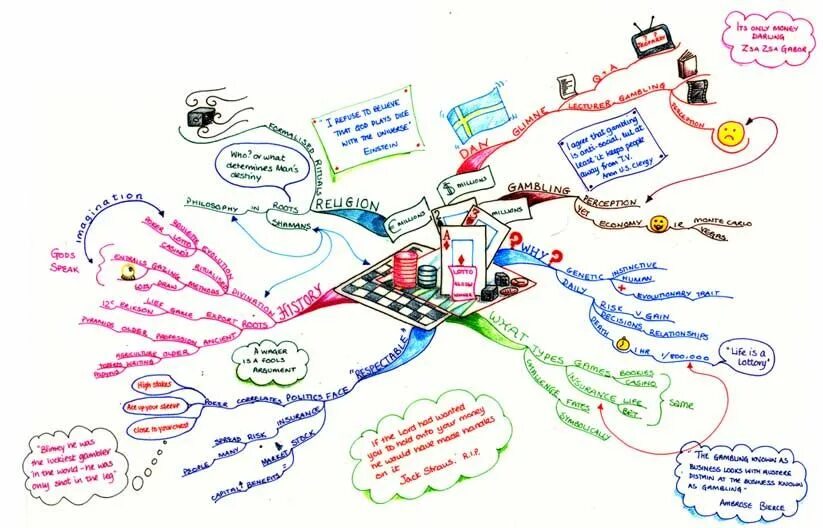 ITS ONLY MONEY
DARLING
ZSA ZSA GABOR
Q + A
DAN GLIMNE LECTURER GAMBLING
PERCEPTION
I REFUSE TO BELIEVE
THAT GOD PLAYS DICE
WITH THE UNIVERSE
EINSTEIN
I agree that gambling
is anti-social, but at
least it keeps people
away from T.V.
Anon U.S. Clergy
FORMALISED RITUALS
Who? or what
determines Man's
destiny
RELIGION
PHILOSOPHY IN ROOTS
SHAMANS
$ MILLIONS
€ MILLIONS
MILLIONS
GAMBLING PERCEPTION
YET ECONOMY IE MONTE CARLO
VEGAS
imagination
GODS
SPEAK
HISTORY
ROULETTE EVOLUTION
POKER LOTTO
CASINOS
ENTRAILS GAZING RITUALISED
LOTS DRAW METHODS DIVINATION
LIFE GAME EXPORT ROOTS
12C ERIKSON
PYRAMIDS OLDER PROFESSION ANCIENT
AGRICULTURE OLDER
WRITING
LOTTO
? WHY ?
GENETIC INSTINCTIVE
HUMAN
EVOLUTIONARY TRAIT
DAILY RISK V GAIN
DECISIONS RELATIONSHIPS
DEATH 1 HR 1/800,000
"Life is a
Lottory"
WHAT TYPES GAMES BOOKIES
CASINO
INSURANCE LIFE
BET
same
CHALLENGE FATES
SYMBOLICALLY
"RESPECTABLE"
FACE POLITICS CORRELATES POKER
High stakes
Ace up your sleeve
Close to your chest
INSURANCE
SPREAD RISK
PEOPLE MANY
STOCK
MARKET =
CAPITAL + BENEFITS
A WAGER
IS A FOOLS
ARGUMENT
"Blimey he was
the luckiest gambler
in the world - he was
only shot in the leg"
If the Lord had wanted
you to hold onto your money
he would have made handles
on it
Jack Straus. R.I.P.
"THE GAMBLING KNOWN AS
BUSINESS LOOKS WITH AUSTERE
DISTAIN AT THE BUSINESS KNOWN
AS GAMBLING"
AMBROSE BIERCE